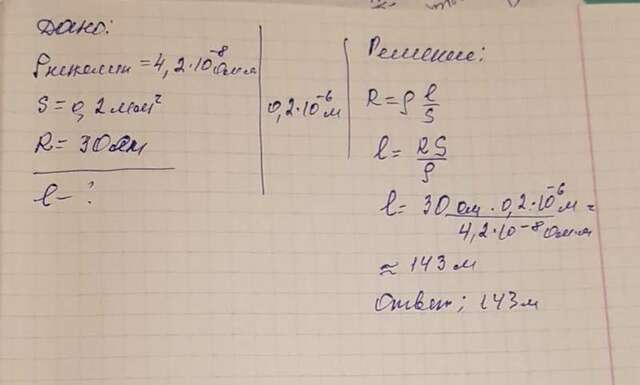 Дано:
ρниколин = 4,2·10⁻⁸ Ом·м
S = 0,2 мм²
R = 30 Ом
l - ?
0,2·10⁻⁶ м
Решение:
R = ρ l/S
l = RS/ρ
l = 30 Ом · 0,2·10⁻⁶ м / 4,2·10⁻⁸ Ом·м =
≈ 143 м
Ответ: 143 м